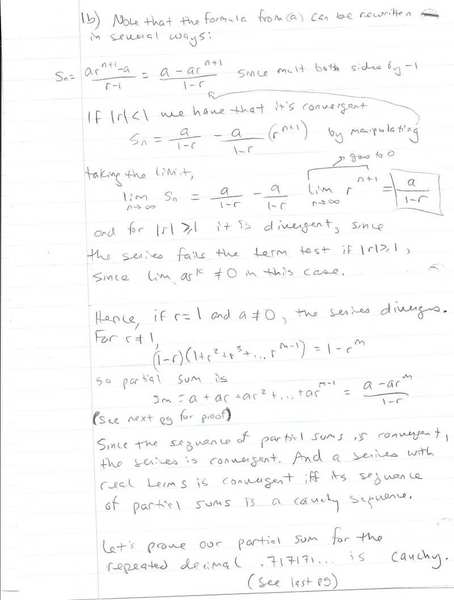 1b) Note that the formula from (a) can be rewritten
in several ways:
Sn = ar^n+1 - a / r-1 = a - ar^n+1 / 1-r since mult both sides by -1
If |r|<1 we have that it's convergent
Sn = a/1-r - a/1-r (r^n+1) by manipulating
goes to 0
taking the limit,
lim n→∞ Sn = a/1-r - a/1-r lim n→∞ r^n+1 = a/1-r
and for |r| ≥ 1 it is divergent, since
the series fails the term test if |r| ≥ 1,
since lim ar^k ≠ 0 in this case.
Hence, if r=1 and a≠0, the series diverges.
For r≠1,
(1-r)(1+r^2+r^3+... r^m-1) = 1-r^m
so partial sum is
Sm = a + ar + ar^2 + ... + ar^m-1 = a - ar^m / 1-r
(see next pg for proof)
Since the sequence of partial sums is convergent,
the series is convergent. And a series with
real terms is convergent iff its sequence
of partial sums is a cauchy sequence.
Let's prove our partial sum for the
repeated decimal .717171... is cauchy.
(see last pg)